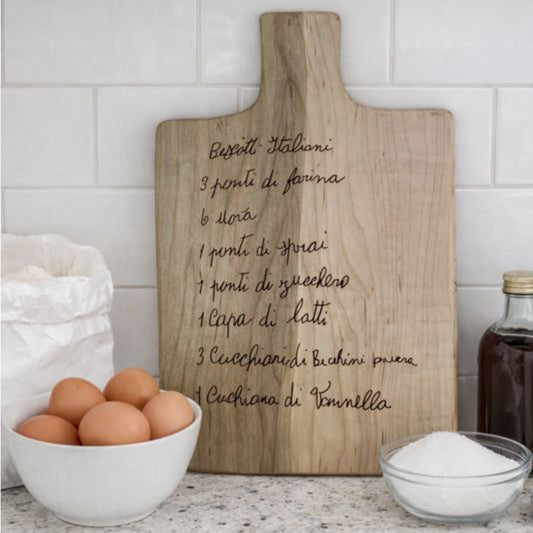 Bescotti Italiani
3 ponti di farina
6 uova
1 ponti di sprai
1 ponti di zucchero
1 Capa di latti
3 Cucchiani di Becchini pauera
1 Cuchiana di Vannella